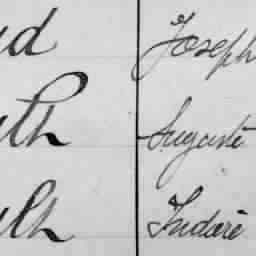 ud Joseph
uth Auguste
uth Isidore